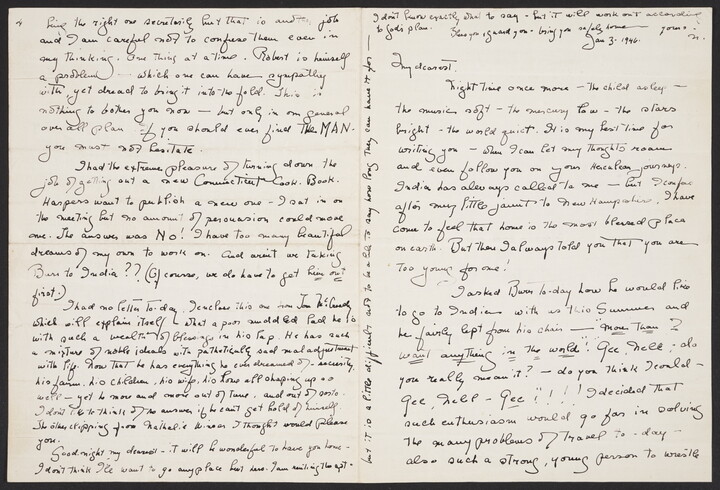 4
being the right one secretarily but that is another job
and I am careful not to confuse them even in
my thinking. One thing at a time. Robert is himself
a problem — which one can have sympathy
with yet dread to bring it into the fold. This is
nothing to bother you now — but only in our general
over all plan if you should ever find THE MAN -
you must not hesitate.
I had the extreme pleasure of turning down the
job of getting out a new Connecticut Cook Book.
Harpers want to publish a new one - I sat in on
the meeting but no amount of persuasion could move
me. The answer was No! I have too many beautiful
dreams of my own to work on. And aren't we taking
Burr to India?? (Of course, we do have to get him out
first.)
I had no letter to-day. I enclose this one from Jim
which will explain itself - what a poor muddled lad he is
with such a wealth of blessings in his lap. He has such
a mixture of noble ideals with pathetically sad maladjustment
with life. Now that he has everything he ever dreamed of - security,
his farm, his children, his wife, his home all shaping up so
well - yet he more and more out of tune, and out of
I don't like to think of the answer if he can't get hold of himself.
The other clipping from I thought would please
you.
Good night my dearest - it will be wonderful to have you home -
I don't think I'll want to go any place but here. I am writing the apt -
but it is a little difficult not to be able to say how long they can have it for —
I don't know exactly what to say - but it will work out according
to God's plan. bless you & guard you - bring you safely home — yours
n.
Jan 3. 1946.
My dearest,
Night time once more - the child asleep -
the music soft - the mercury low - the stars
bright - the world quiet. It is my best time for
writing you - when I can let my thoughts roam
and even follow you on your Herculean journeys.
India has always called to me - but I confess
after my little jaunt to New Hampshire, I have
come to feel that home is the most blessed place
on earth. But then I always told you that you are
too young for me!
I asked Burr to-day how he would like
to go to India with us this Summer and
he fairly leapt from his chair — "more than?
want anything in the world"! Gee, Nell - do
you really mean it? - do you think I could -
Gee, Nell - Gee!!!! I decided that
such enthusiasm would go far in solving
the many problems of travel to-day -
also such a strong, young person to wrestle